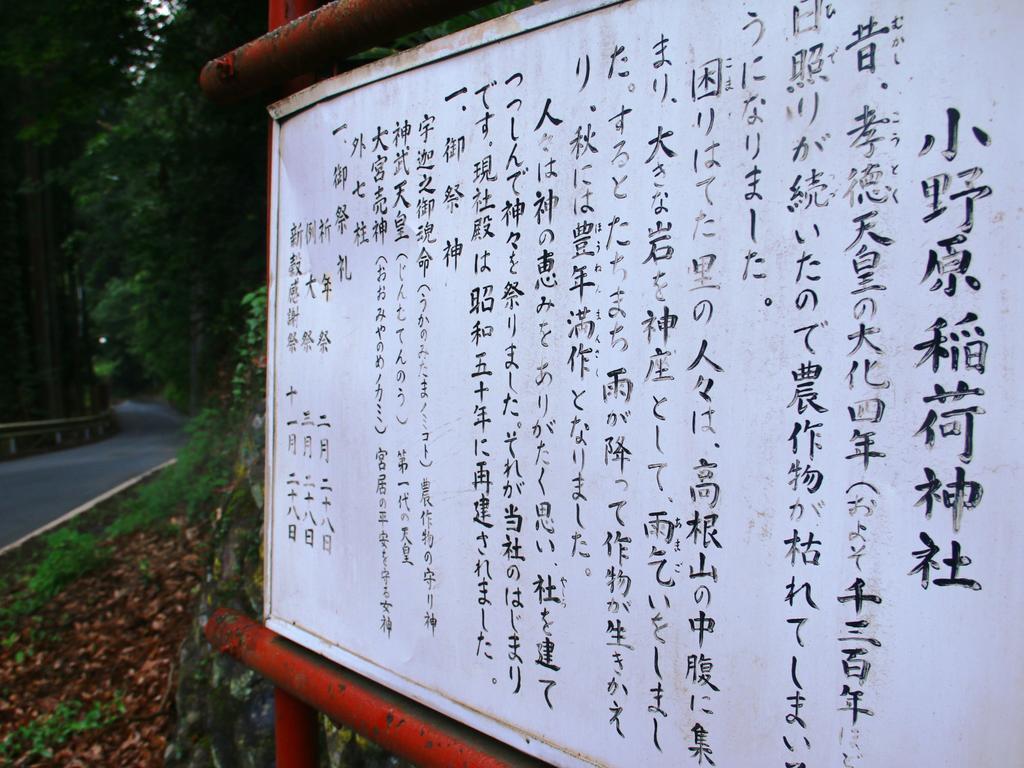 小野原稲荷神社
昔、孝徳天皇の大化四年(およそ千三百年ほど
日照りが続いたので農作物が枯れてしまいそ
うになりました。
困りはてた里の人々は、高根山の中腹に集
まり、大きな岩を神座として、雨乞いをしまし
た。するとたちまち雨が降って作物が生きかえ
り、秋には豊年満作となりました。
人々は神の恵みをありがたく思い、社を建て
つつしんで神々を祭りました。それが当社のはじまり
です。現社殿は昭和五十年に再建されました。
一、御祭神
宇迦之御魂命(うかのみたまノミコト)農作物の守り神
神武天皇(じんむてんのう)第一代の天皇
大宮売神(おおみやのめノカミ)宮居の平安を守る女神
外七柱
一、御祭礼
祈年祭 二月二十八日
例大祭 三月二十八日
新穀感謝祭 十一月二十八日